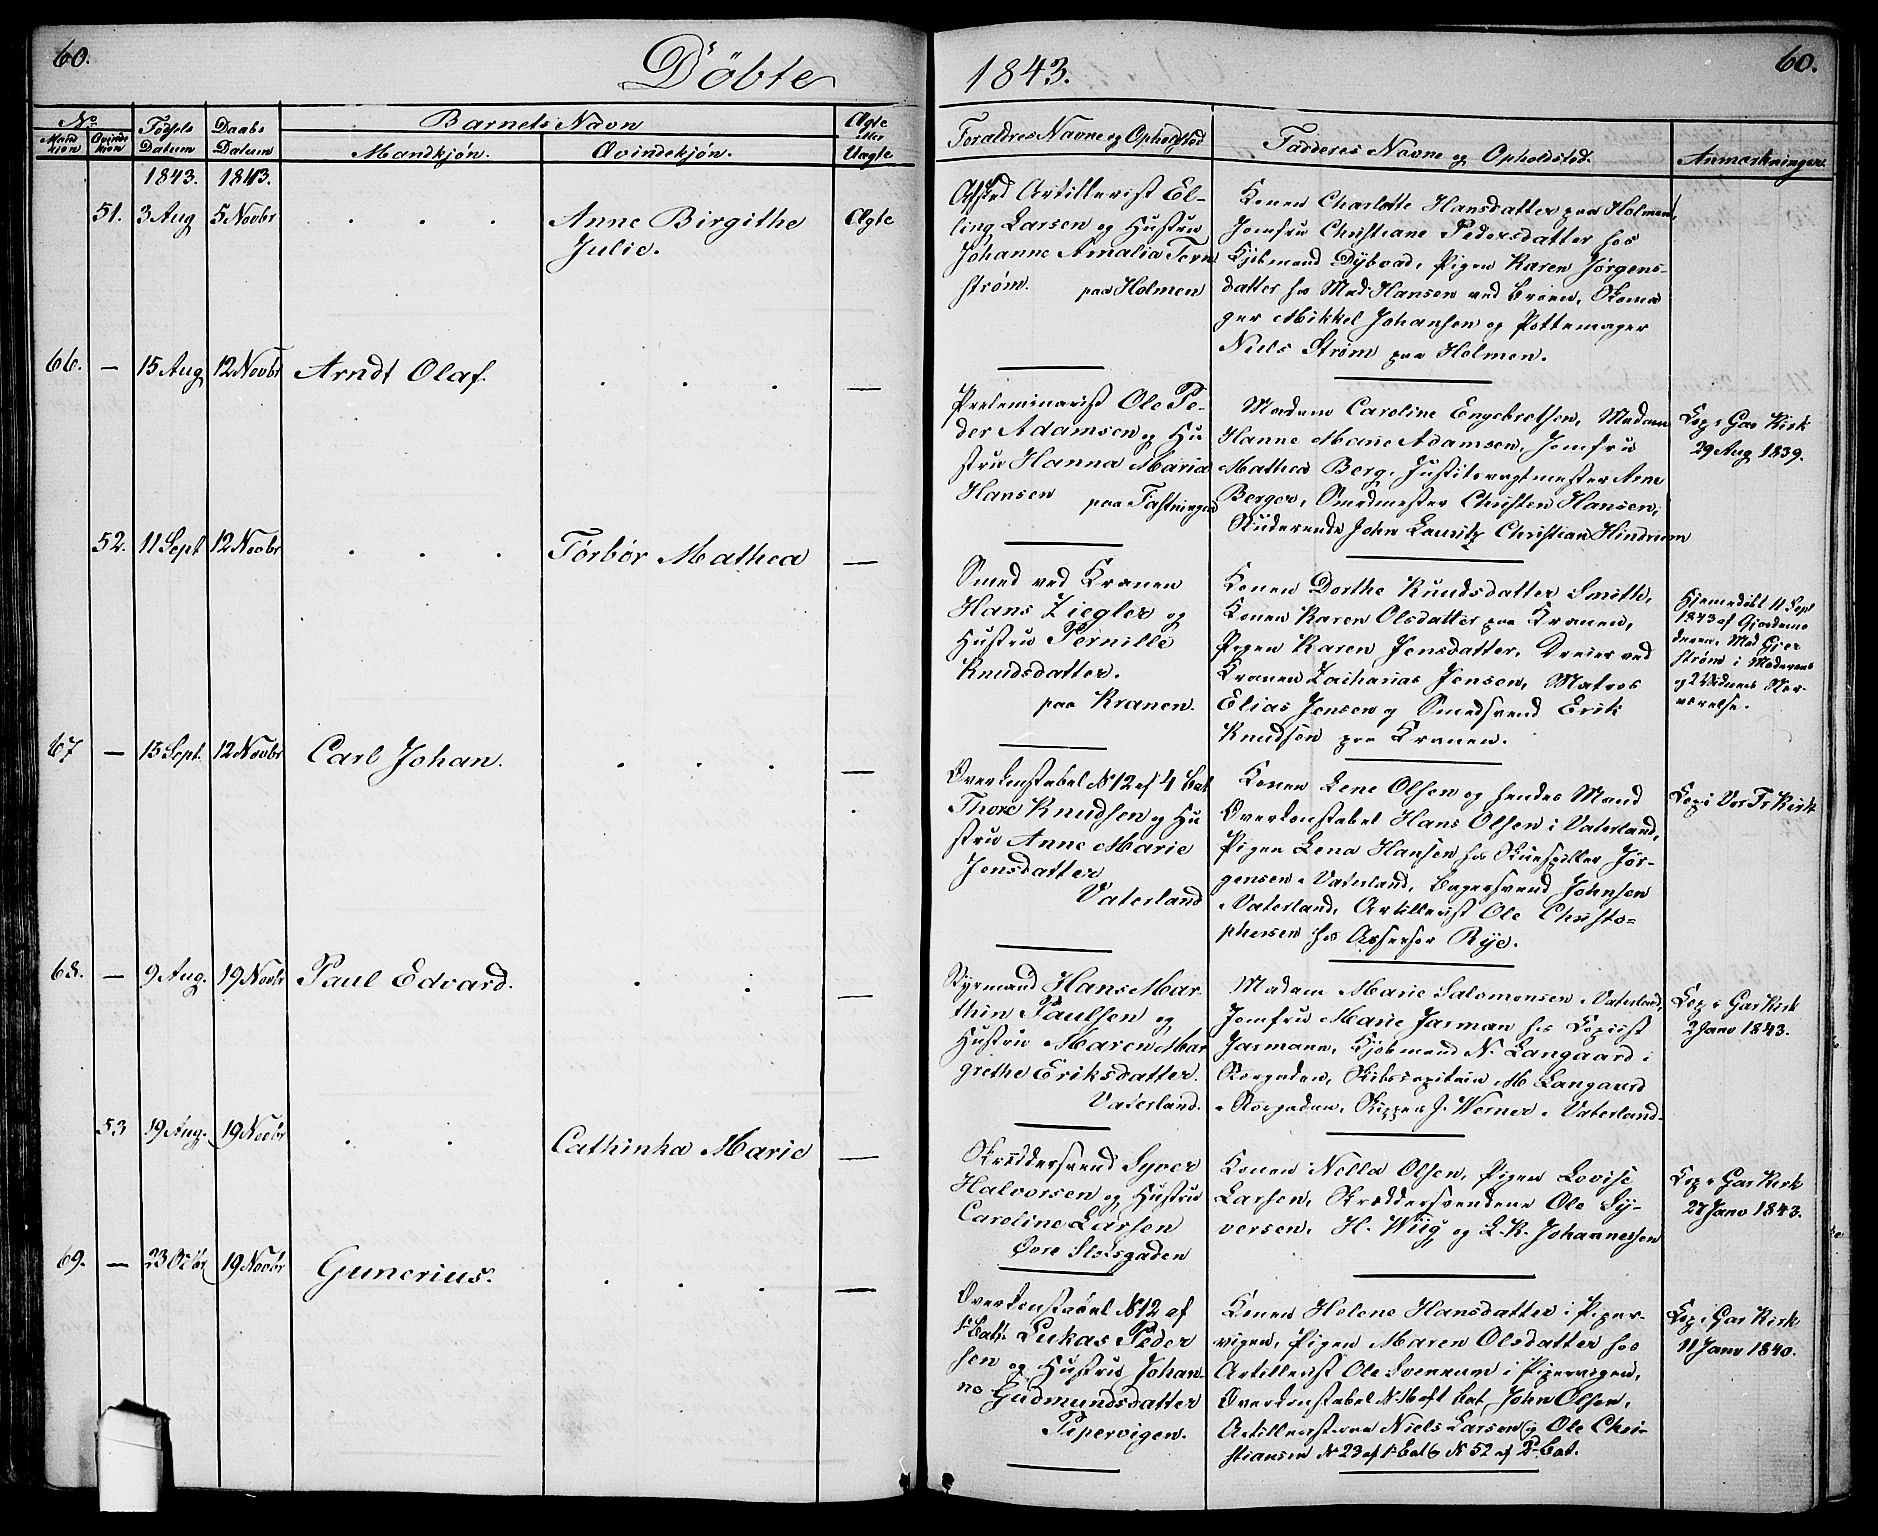 60.
Döbte
1843.
60.
No
Mand kjön
Qvinde kjön
Födsels Datum
Daabs Datum
Barnets Navn
Mandkjön.
Qvindekjön.
Ægte eller Uægte
Forældres Navne og Opholdsted
Fadderes Navne og Opholdsted.
Anmærkninger.
1843. 1843.
51. 3 Aug 5 Novbr . . . Anne Birgithe Ægte
Julie.
Afsked Artillerist El-
ling Larsen og Hustru
Johanne Amalia Tern
strøm. paa Holmen
Konen Charlotte Hansdatter paa Holmen,
Jomfru Christiane Pedersdatter hos
Kjøbmand Dybvad, Pigen Karen Jørgens-
datter hos Mad Hansen ved Broen, Skoma
ger Mikkel Johansen og Pottemager
Niels Strøm paa Holmen.
66. — 15 Aug 12 Novbr Arndt Olaf. . . . —
Preleminarist Ole Pe-
der Adamsen og Hu
stru Hanna Maria
Hansen paa Fæstningen
Madam Caroline Engebretsen, Madam
Hanne Marie Adamsen, Jomfru
Mathea Berg, Arne
Berger, Smedmester Christen Hansen,
Studerende John Lauritz Christian Hindrum
Cop i Gar Kirk
29 Aug 1839.
52. 11 Sept 12 Novbr . . . Tørbør Mathea —
Smed ved Kranen
Hans Ziegler og
Hustru Pernille
Knudsdatter.
paa Kranen.
Konen Dorthe Knudsdatter Smith,
Konen Karen Olsdatter paa Kranen,
Pigen Karen Jensdatter, Dreier ved
Kranen Zacharias Jensen, Matros
Elias Jensen og Smedsvend Erik
Knudsen paa Kranen.
Hjemmedøbt 11 Sept
1843 af Gjordemo
deren, Mad Gjer
strøm i Moderens
og 2 Vidners Nær-
værelse.
67 — 15 Sept. 12 Novbr Carl Johan. . . . —
Overkonstabel No 12 af 4 Bat
Thore Knudsen og Hu
stru Anne Marie
Jensdatter
Vaterland
Konen Lene Olsen og hendes Mand
Overkonstabel Hans Olsen i Vaterland,
Pigen Lena Hansen hos Skuespiller Jør-
gensen i Vaterland, Bagersvend Johnsen
i Vaterland, Artillerist Ole Christo-
phersen hos Assessor Rye.
Cop i Vor Fr Kirk
68. — 9 Aug. 19 Novbr Paul Edvard. . . —
Styrmand Hans Mar-
thin Paulsen og
Hustru Maren Mar
grethe Eriksdatter.
Vaterland.
Madam Marie Salomonsen i Vaterland,
Jomfru Marie Jarman hos Copiist
Jarmann, Kjøbmand N. Langaard i
Storgaden, Skibscapitain M Langaard
i Storgaden, Skipper J. Werner i Vaterland.
Cop i Gar Kirk
2 Janv 1843.
53 19 Aug. 19 Novbr . . Cathinka Marie —
Skræddersvend Syver
Halvorsen og Hustru
Caroline Larsen
Øvre Slotsgaden
Konen Nella Olsen, Pigen Lovise
Larsen, Skræddersvendene Ole Sy-
versen, H. Wiig og L. K. Johannessen
Cop i Gar Kirk
27 Janv 1843.
69. — 23 Octbr 19 Novbr Gunerius. . . . —
Overkonstabel No 12 af
1e Bat. Lukas Peder
sen og Hustru Johan-
ne Gudmundsdatter
Pipervigen.
Konen Helene Hansdatter i Piper-
vigen, Pigen Maren Olsdatter hos
Artillerist Ole Svenrum i Pipervigen,
Overkonstabel Bat John Olsen,
Artilleristerne Niels Larsen og Ole Chri-
stiansen No 23 af 1 Bat og No 52 af 2 Bat.
Cop i Gar Kirk
11 Janv 1840.